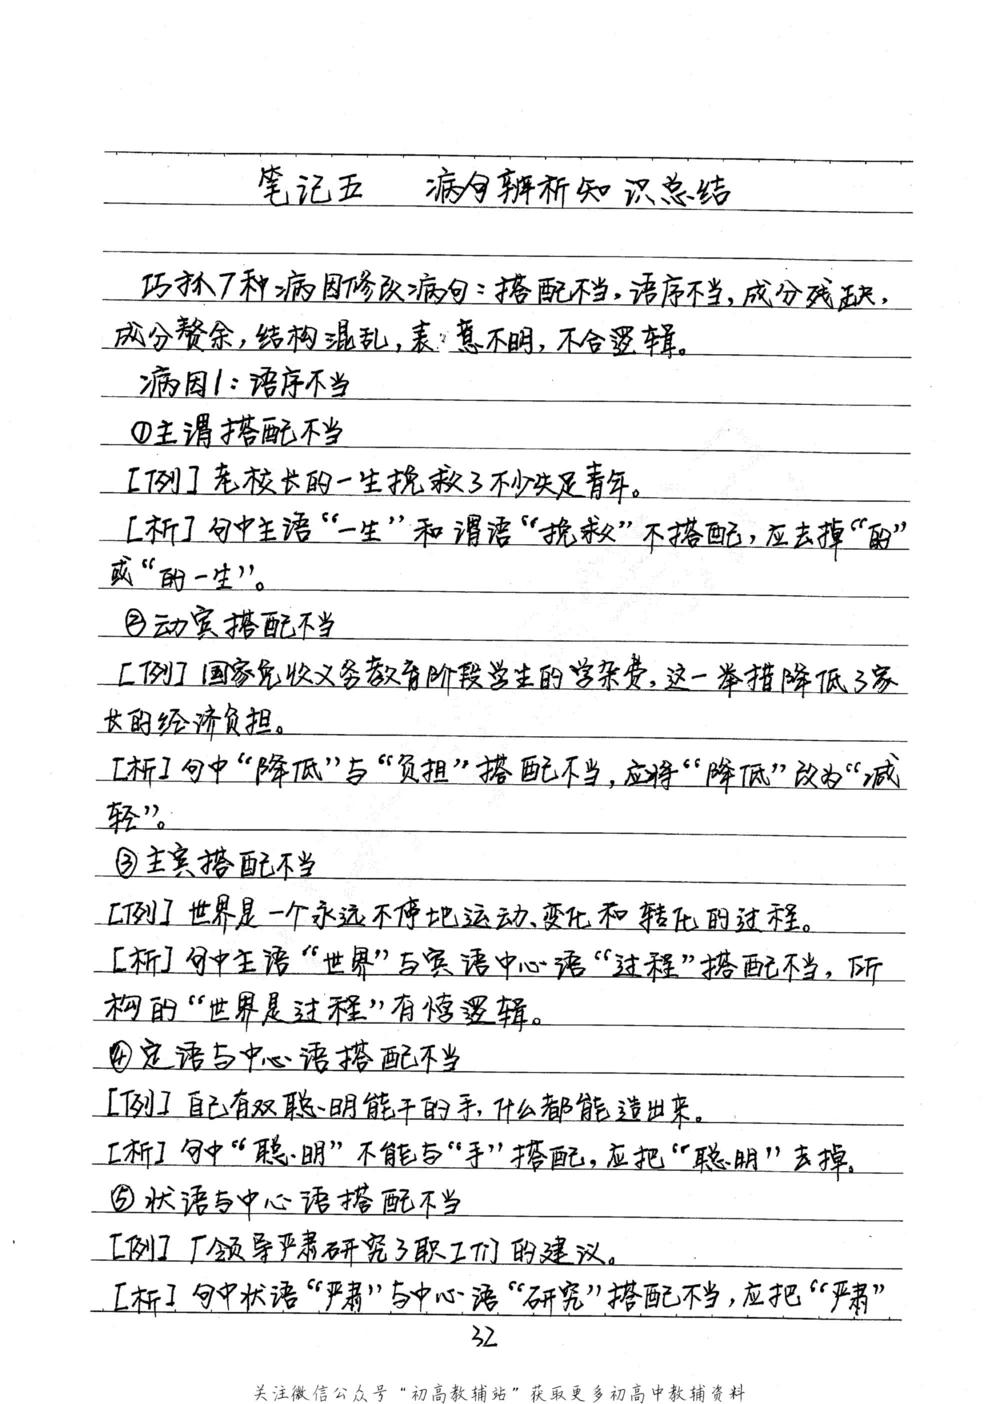 笔记五 病句辨析知识总结
巧抓7种病因修改病句：搭配不当，语序不当，成分残缺，
成分赘余，结构混乱，表意不明，不合逻辑。
病因1：语序不当
①主谓搭配不当
[例]老校长的一生挽救了不少失足青年。
[析]句中主语“一生”和谓语“挽救”不搭配，应去掉“的”
或“的一生”。
②动宾搭配不当
[例]国家免收义务教育阶段学生的学杂费，这一举措降低了家
长的经济负担。
[析]句中“降低”与“负担”搭配不当，应将“降低”改为“减
轻”。
③主宾搭配不当
[例]世界是一个永远不停地运动、变化和转化的过程。
[析]句中主语“世界”与宾语中心语“过程”搭配不当，所
构的“世界是过程”有悖逻辑。
④定语与中心语搭配不当
[例]自己有双聪明能干的手，什么都能造出来。
[析]句中“聪明”不能与“手”搭配，应把“聪明”去掉。
⑤状语与中心语搭配不当
[例]厂领导严肃研究了职工们的建议。
[析]句中状语“严肃”与中心语“研究”搭配不当，应把“严肃”
32
关注微信公众号“初高教辅站”获取更多初高中教辅资料